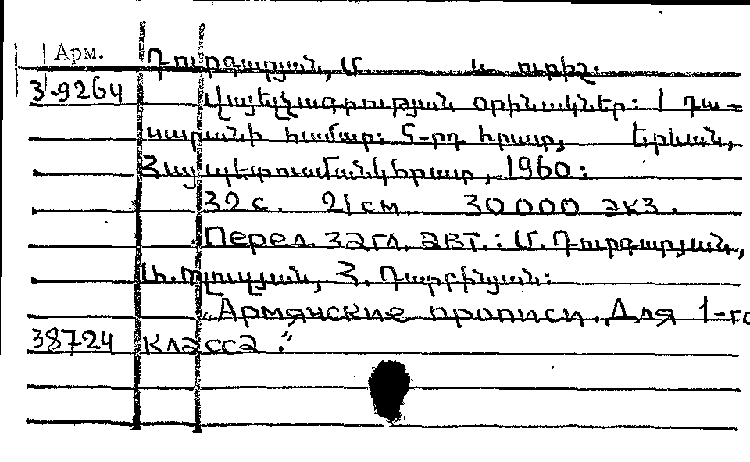 Арм.
Դուրգարյան, Մ. և ուրիշ.
3-9264 Վայելչագրության օրինակներ: I դա-
սարանի համար: 5-րդ հրատ, Երևան,
Հայպետուսմանկհրատ, 1960:
32 с. 21 см 30000 экз.
Перел. загл. авт.: Մ. Դուրգարյան,
Հ. Դարբինյան:
„Армянские прописи. Для 1-го
38724 класса."